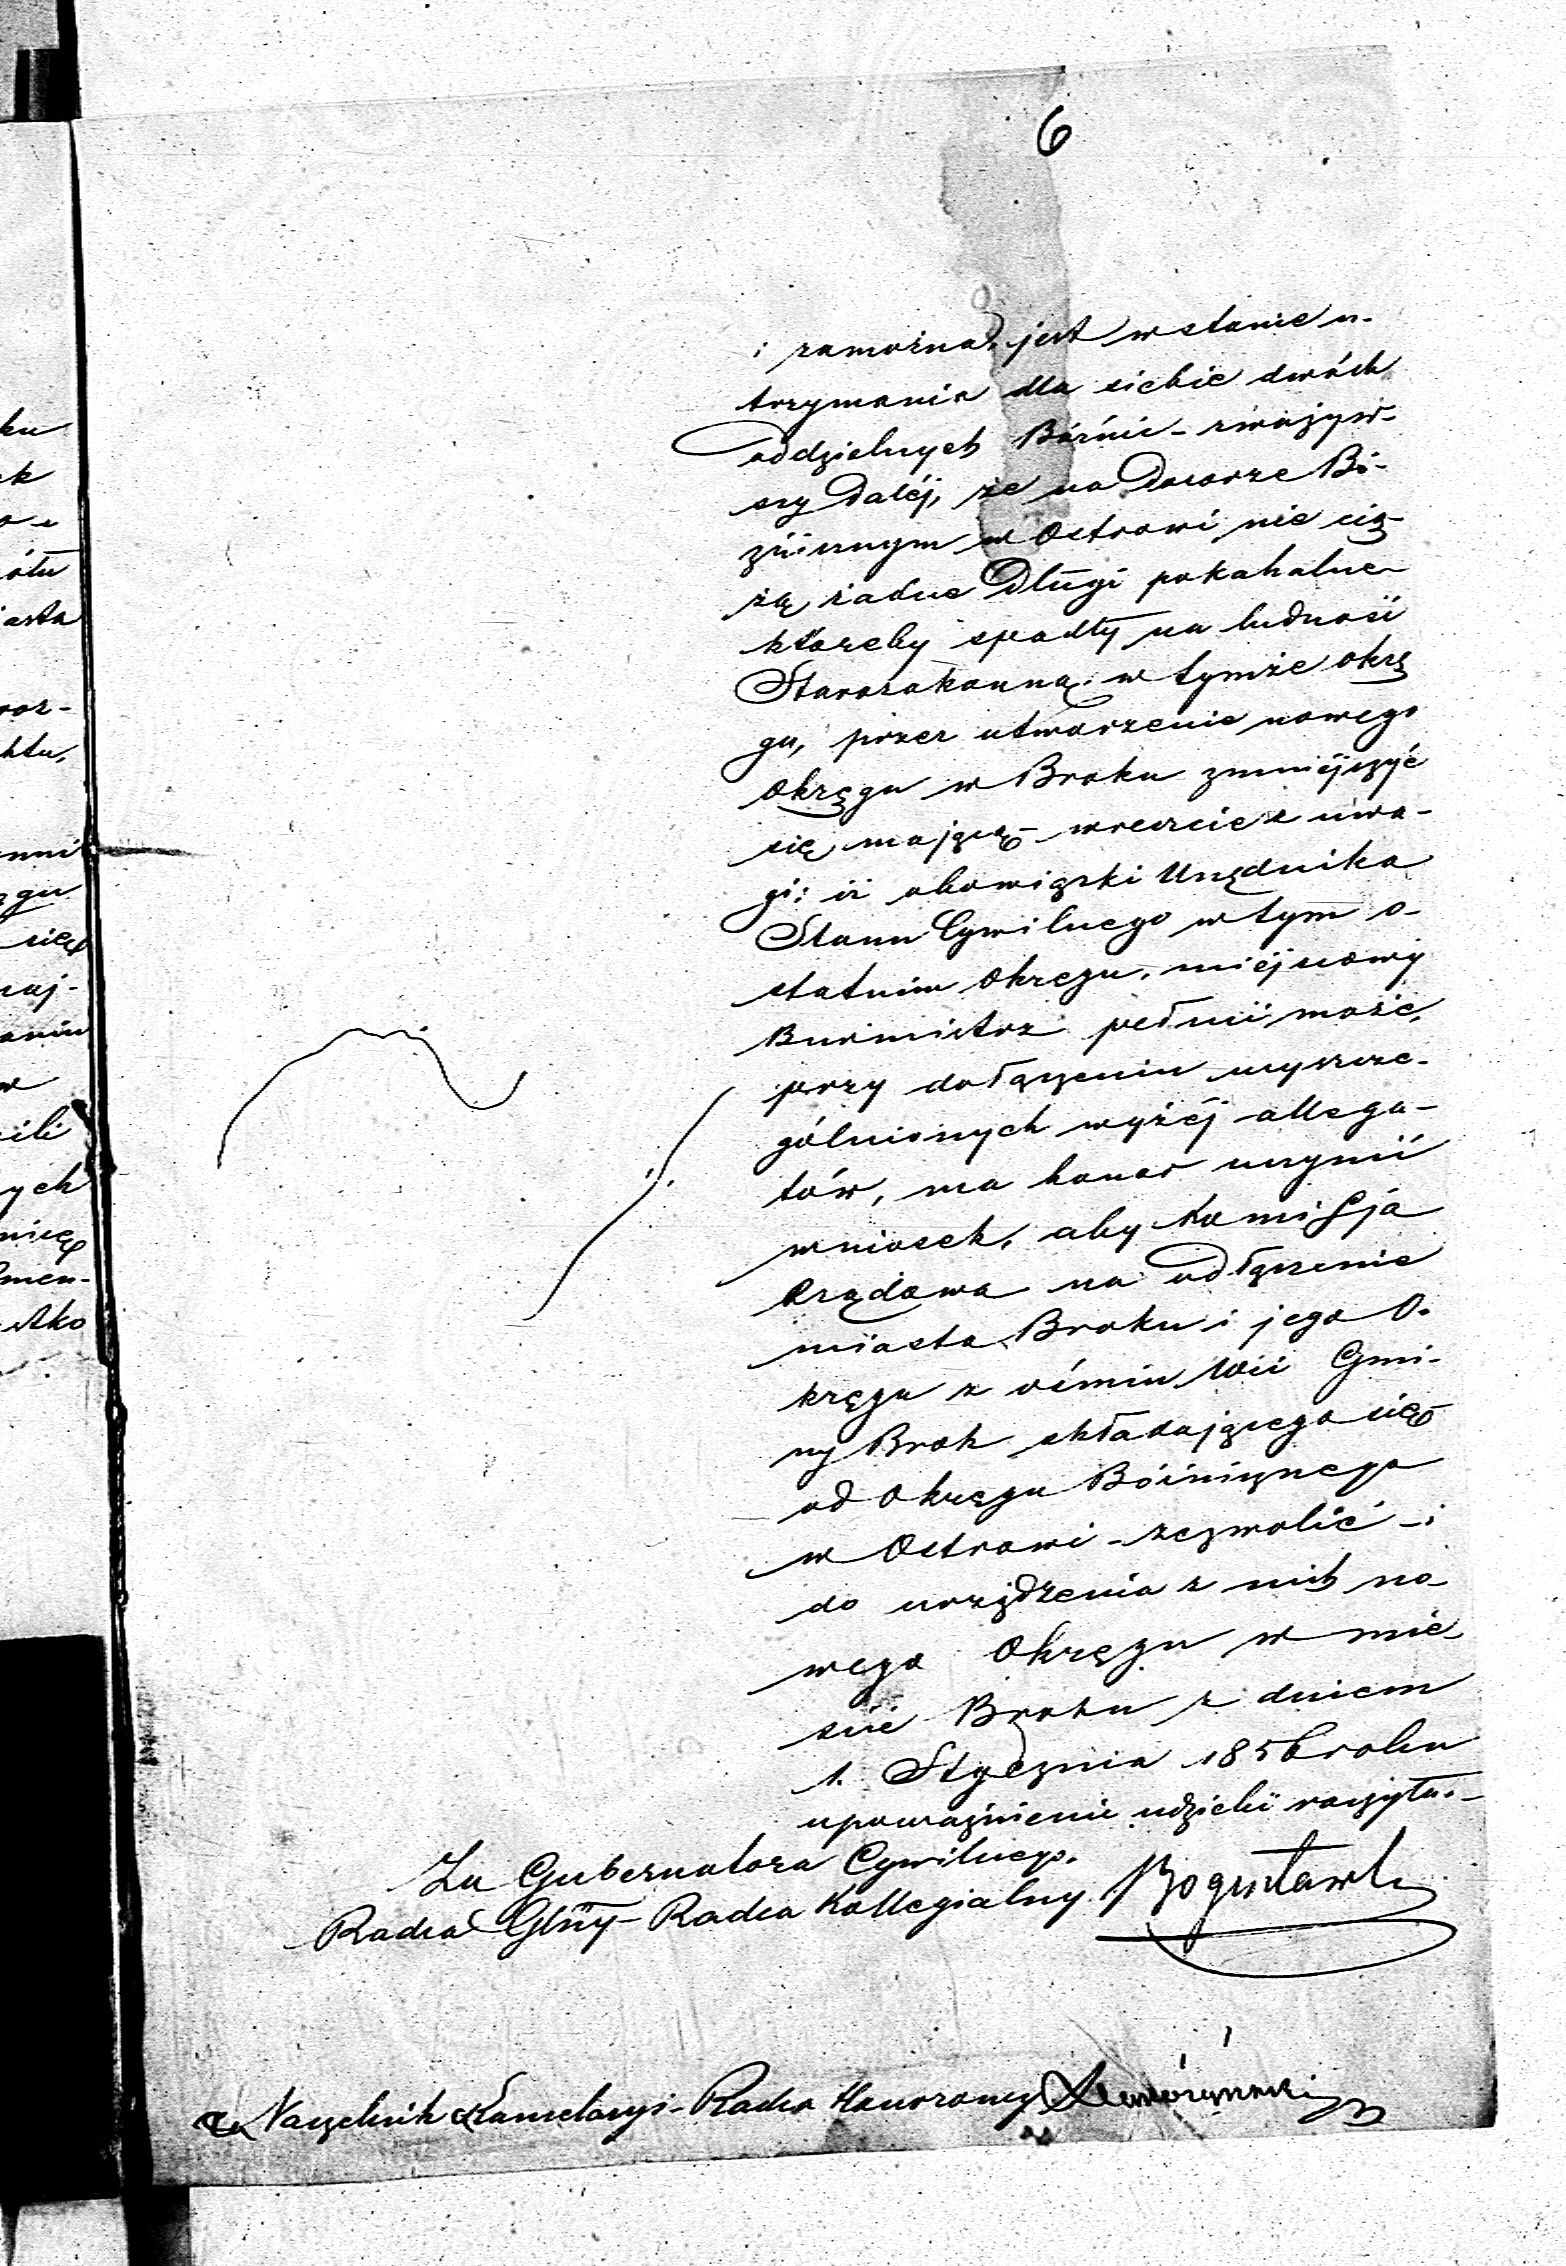 6
i zamożna, jest w stanie u-
trzymania dla siebie dwóch
oddzielnych Bóżnic - zważyw-
szy daléj, że na Dozorze Bó-
żnicznym w Ostrowi nie cią-
żą żadne Długi pokahalne
któreby spadły na ludność
Starozakonną w tymże okrę
gu, przez utworzenie nowego
Okręgu w Broku zmniéjszyć
się mającą - wreszcie z uwa-
gi: iż obowiązki Urzędnika
Stanu Cywilnego w tym o-
statnim Okręgu, miéjscowy
Burmistrz pełnić może,
przy dołączeniu wyszcze-
gólnionych wyżéj allega-
tów, ma honor uczynić
wniosek, aby Kommissja
Rządowa na odłączenie
miasta Broku i jego O-
kręgu z ośmiu Wsi Gmi-
ny Brok składającego się
od Okręgu Bóżnicznego
w Ostrowi - zezwolić - i
do urządzenia z nich no-
wego Okręgu w mie-
ście Broku z dniem
1. Stycznia 1856 roku
upoważnienie udzielić raczyła.-
Za Gubernatora Cywilnego.
Radca Glny - Radca Kollegialny Bogusławski
za Naczelnik Kancelaryi - Radca Honorowy
ku
ek
ótu
iasta
roz-
ktu,
enni
ęgu
się
aj-
aniu
w
ili
ych
nicę
men-
tko